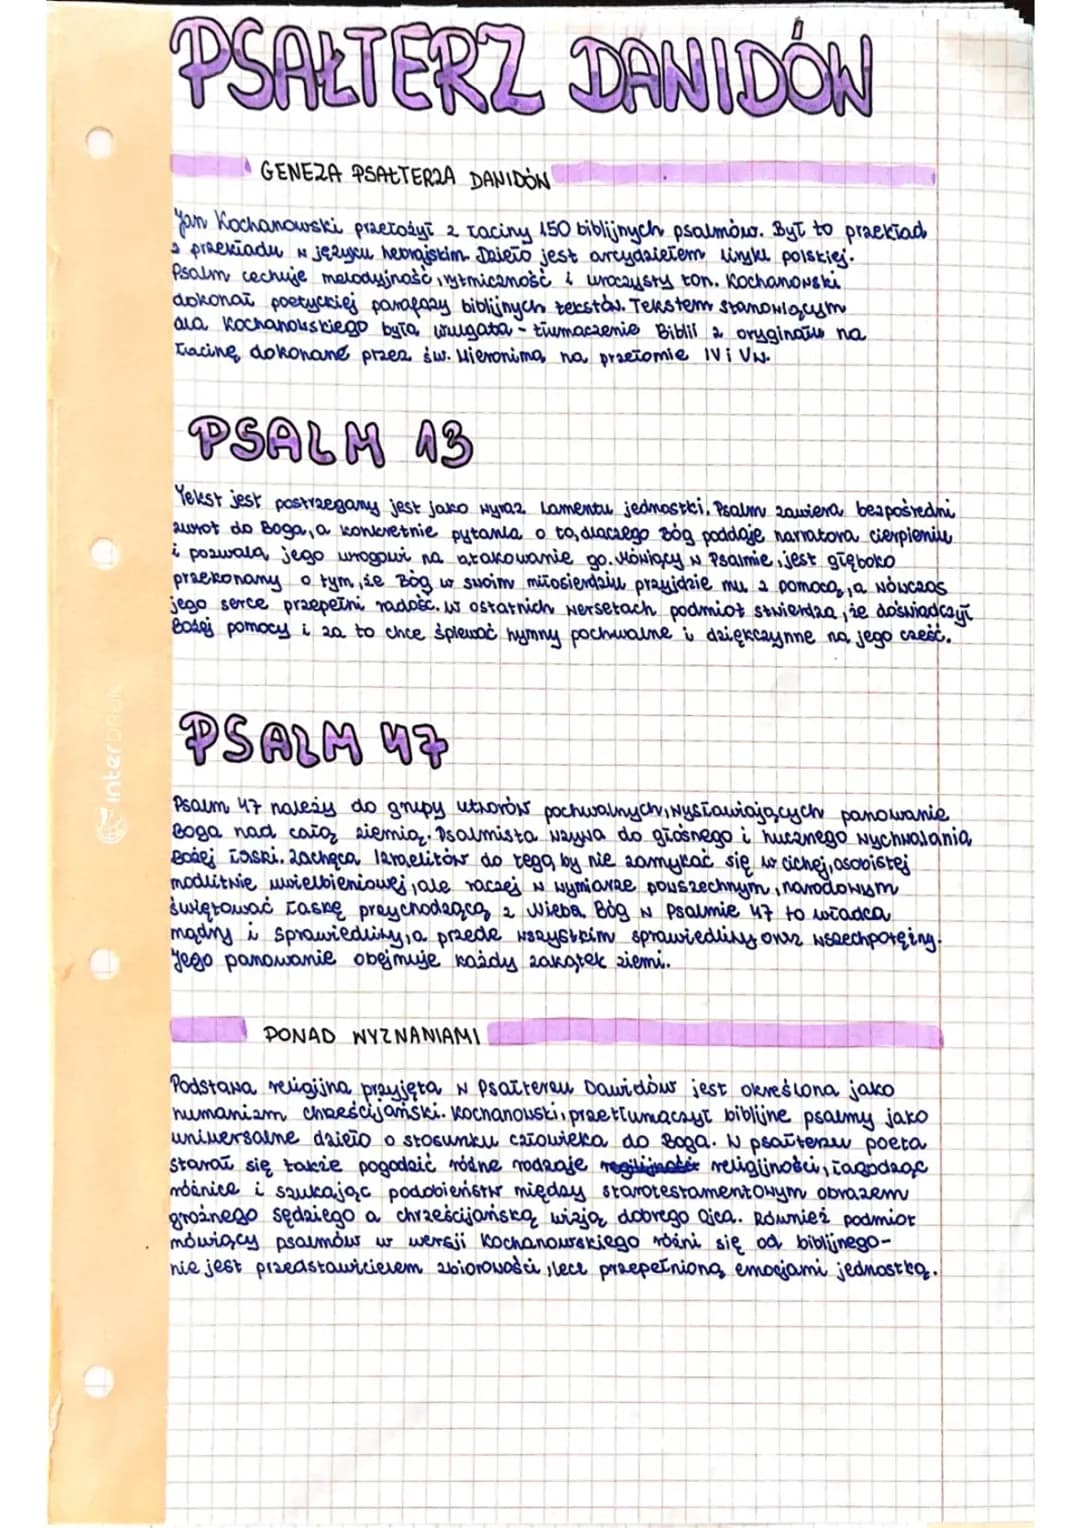 PSAŁTERZ DAWIDÓW
GENEZA PSAŁTERZA DAWIDÓW
Jan Kochanowski przełożył z łaciny 150 biblijnych psalmów. Był to przekład
z przekładu w języku hebrajskim. Dzieło jest arcydziełem liryki polskiej.
Psalm cechuje melodyjność, rytmiczność i uroczysty ton. Kochanowski
dokonał poetyckiej parafrazy biblijnych tekstów. Tekstem stanowiącym
dla Kochanowskiego była wulgata - tłumaczenie Biblii z oryginału na
łacinę dokonane przez św. Hieronima na przełomie IV i V w.
PSALM 13
Tekst jest postrzegany jest jako wyraz lamentu jednostki. Psalm zawiera bezpośredni
zwrot do Boga, a konkretnie pytania o to, dlaczego Bóg poddaje narratora cierpieniu
i pozwala jego wrogowi na atakowanie go. Mówiący w Psalmie, jest głęboko
przekonany o tym, że Bóg w swoim miłosierdziu przyjdzie mu z pomocą, a wówczas
jego serce przepełni radość. W ostatnich wersetach podmiot stwierdza, że doświadczył
Bożej pomocy i za to chce śpiewać hymny pochwalne i dziękczynne na jego cześć.
interdruk
PSALM 47
Psalm 47 należy do grupy utworów pochwalnych, wysławiających panowanie
Boga nad całą ziemią. Psalmista wzywa do głośnego i hucznego wychwalania
Bożej łaski. Zachęca Izraelitów do tego, by nie zamykać się w cichej, osobistej
modlitwie uwielbieniowej, ale raczej w wymiarze powszechnym, narodowym
świętować łaskę przychodzącą z Nieba. Bóg w Psalmie 47 to władca
mądry i sprawiedliwy, a przede wszystkim sprawiedliwy oraz wszechpotężny.
Jego panowanie obejmuje każdy zakątek ziemi.
PONAD WYZNANIAMI
Podstawa religijna przyjęta w Psałterzu Dawidów jest określona jako
humanizm chrześcijański. Kochanowski, przetłumaczył biblijne psalmy jako
uniwersalne dzieło o stosunku człowieka do Boga. W psałterzu poeta
starał się także pogodzić różne rodzaje religijności, łagodząc
różnice i szukając podobieństw między starotestamentowym obrazem
groźnego sędziego a chrześcijańską wizją dobrego Ojca. Również podmiot
mówiący psalmów w wersji Kochanowskiego różni się od biblijnego-
nie jest przedstawicielem zbiorowości, lecz przepełnioną emocjami jednostką.